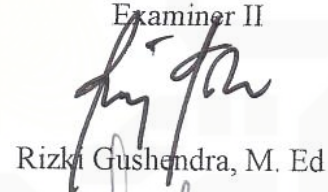 Examiner II
Rizki Gushendra, M. Ed